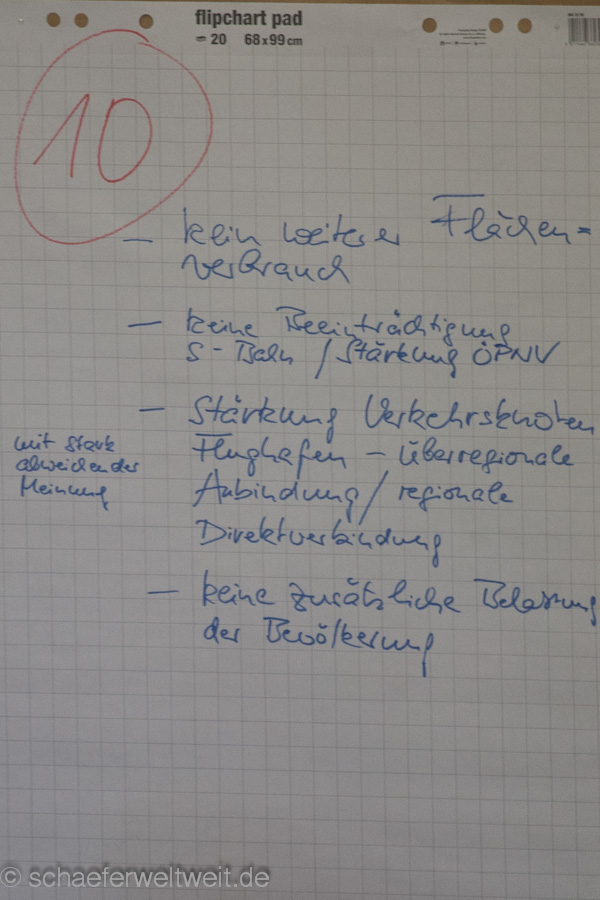 flipchart pad
20 68x99cm
10
– kein weiterer Flächen=
verbrauch
– keine Beeinträchtigung
S-Bahn / Stärkung ÖPNV
– Stärkung Verkehrsknoten
Flughafen – überregionale
Anbindung / regionale
Direktverbindung
mit stark
abweichender
Meinung
– keine zusätzliche Belastung
der Bevölkerung
© schaeferweltweit.de